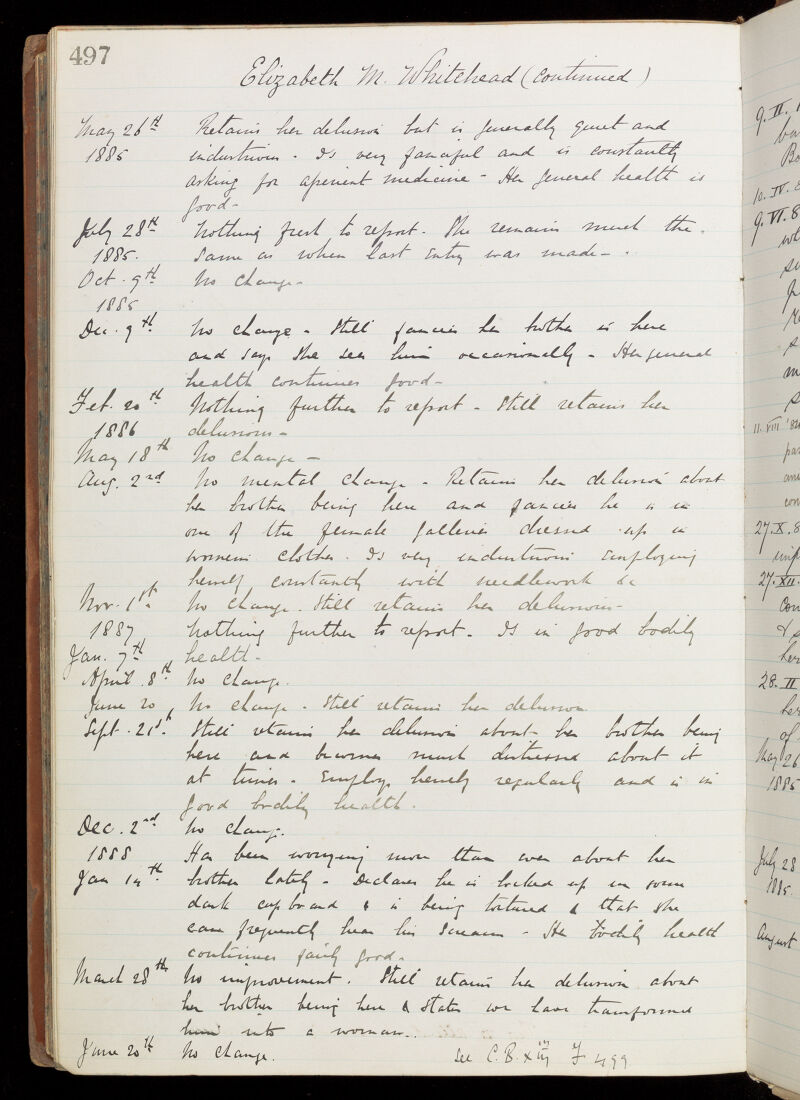 497
Elizabeth M. Whitehead (continued)
May 26th Retains her delusion but is generally quiet and
1885 industrious. Is very fanciful and is constantly
asking for aperient medicine - Her general health is
good -
July 28th Nothing fresh to report. She remains much the
1885. same as when last entry was made -
Oct. 9th No change -
1885
Dec. 9th No change - Still fancies her brother is here
and says she sees him occasionally - Her general
health continues good -
Feb. 20th Nothing further to report - Still retains her
1886 delusions -
May 18th No change -
Aug. 2nd No mental change - Retains her delusion about
her brother being here and fancies he is in
one of the female galleries dressed up in
womens clothes. Is very industrious employing
herself constantly with needlework &c
Nov. 1st No change. Still retains her delusions -
1887 Nothing further to report. Is in good bodily
Jan. 7th health -
April 8th No change.
June 20 No change - Still retains her delusion
Sept. 21st. Still retains her delusion about her brother being
here and becomes much distressed about it
at times - Employs herself regularly and is in
good bodily health.
Dec. 2nd No change.
1888 Has been worrying more than ever about her
Jan 14th brother lately - Declares he is locked up in some
dark cupboard & is being tortured & that she
can frequently hear his screams - Her bodily health
continues fairly good -
March 28th No improvement. Still retains her delusion about
her brother being here & states we have transformed
him into a woman.
June 20th No change. See C.B. F 499
9. II.
10. IV. 8
9. VI. 8
11. VIII
27. X. 8
27. XII
28. II
her
of
May 26
1885
July 28
1885
August